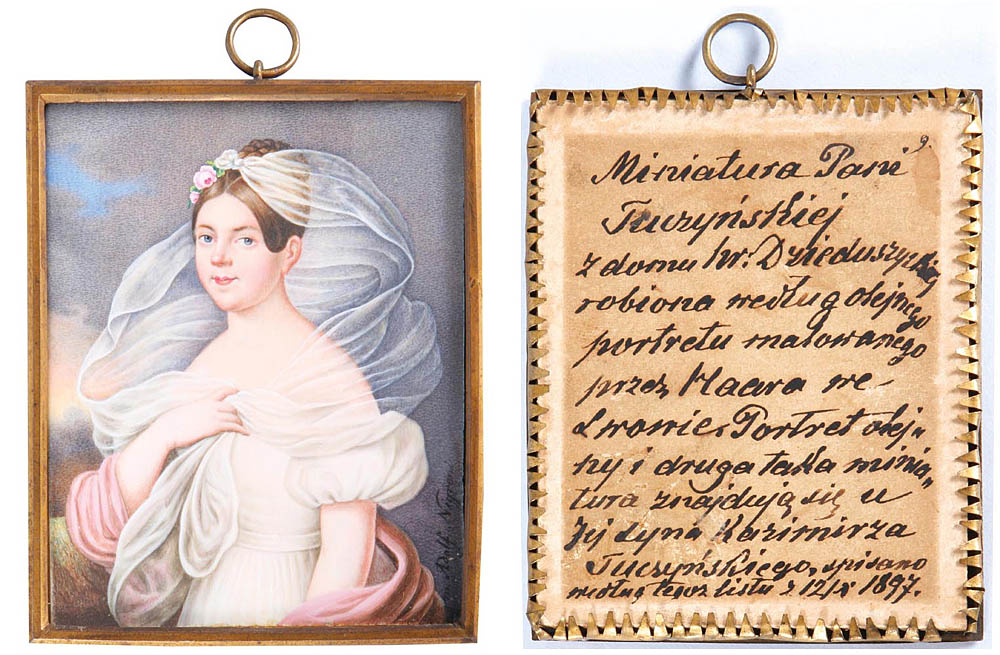 9.
Miniatura Pani
Tuczyńskiej
z domu hr. Dzieduszyckiej
robiona według olejnego
portretu malowanego
przez Maara we
Lwowie. Portret olej„
ny i druga taka minia„
tura znajdują się u
Jej syna Kazimirza
Tuczyńskiego, spisano
według tegoż listu z 12/X 1897.